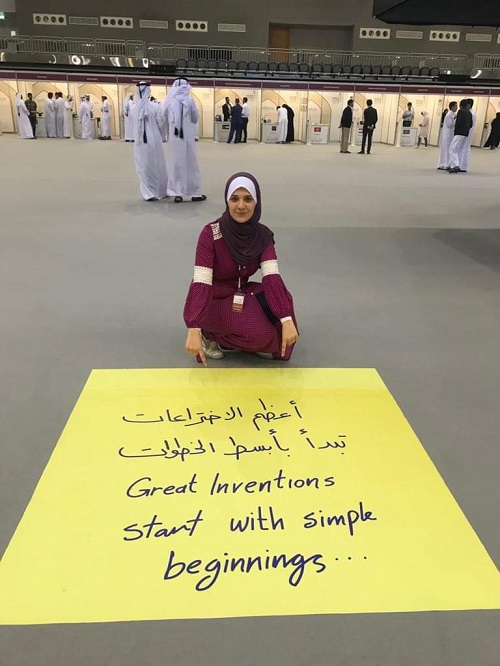 أعظم الاختراعات
تبدأ بأبسط الخطوات
Great Inventions
start with simple
beginnings...